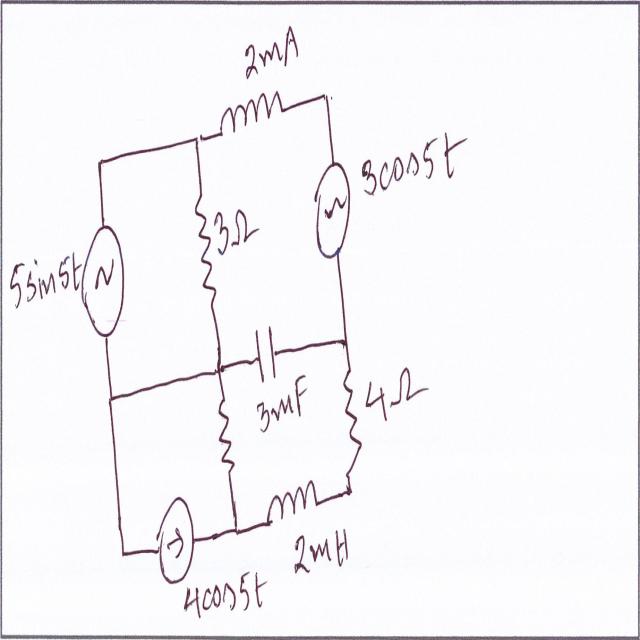 2mA
3cos5t
3Ω
5sin5t
3mF
4Ω
2mH
4cos5t